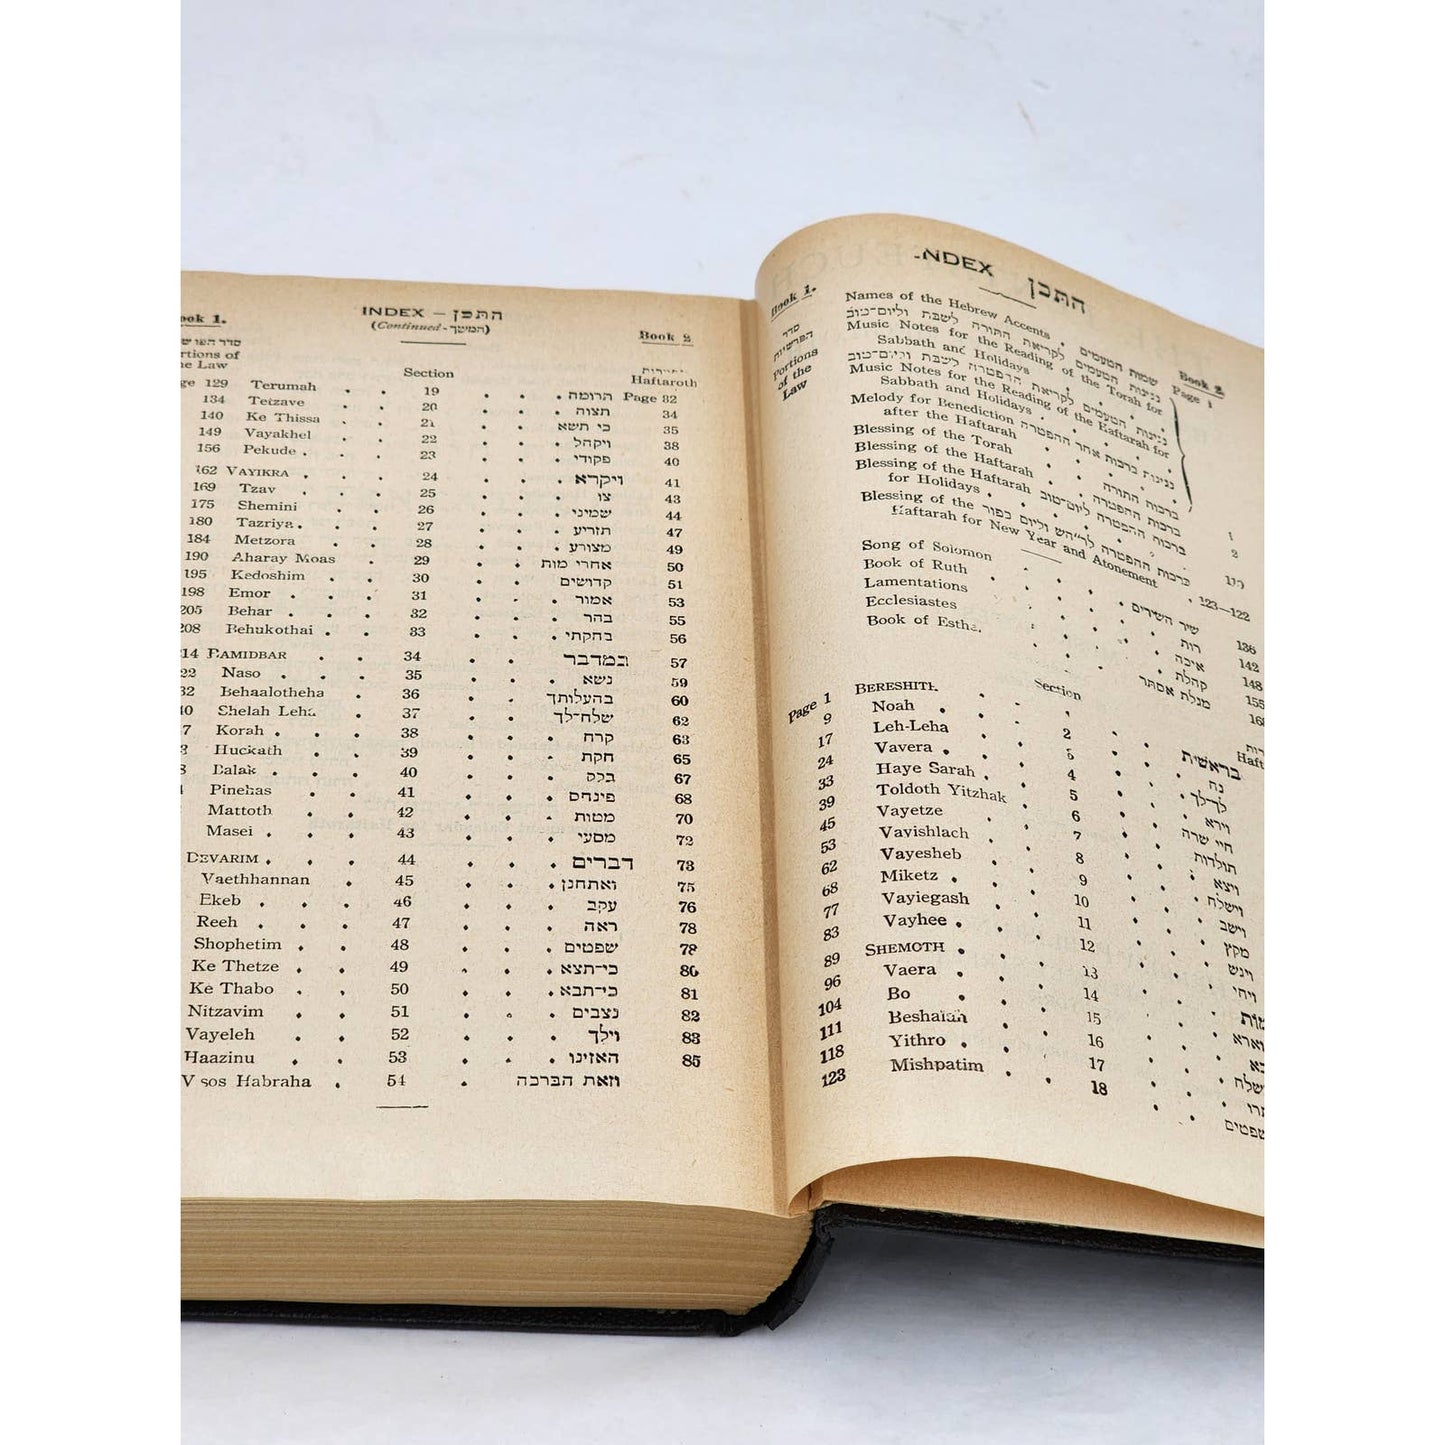 INDEX — התכן
(Continued - המשך)
Book 2
Section
Haftaroth
129 Terumah 19 תרומה Page 32
134 Tetzave 20 תצוה 34
140 Ke Thissa 21 כי תשא 35
149 Vayakhel 22 ויקהל 38
156 Pekude 23 פקודי 40
162 VAYIKRA 24 ויקרא 41
169 Tzav 25 צו 43
175 Shemini 26 שמיני 44
180 Tazriya 27 תזריע 47
184 Metzora 28 מצורע 49
190 Aharay Moas 29 אחרי מות 50
195 Kedoshim 30 קדושים 51
198 Emor 31 אמור 53
205 Behar 32 בהר 55
208 Behukothai 33 בחקתי 56
BAMIDBAR 34 במדבר 57
Naso 35 נשא 59
Behaalotheha 36 בהעלותך 60
Shelah Leha 37 שלח־לך 62
Korah 38 קרח 63
Huckath 39 חקת 65
Balak 40 בלק 67
Pinehas 41 פינחס 68
Mattoth 42 מטות 70
Masei 43 מסעי 72
DEVARIM 44 דברים 73
Vaethhannan 45 ואתחנן 75
Ekeb 46 עקב 76
Reeh 47 ראה 78
Shophetim 48 שפטים 78
Ke Thetze 49 כי־תצא 80
Ke Thabo 50 כי־תבא 81
Nitzavim 51 נצבים 82
Vayeleh 52 וילך 83
Haazinu 53 האזינו 85
Habraha 54 וזאת הברכה
INDEX התכן
Book 1.
Book 2.
סדר
הפרשיות
Portions
of the
Law
Names of the Hebrew Accents שמות הטעמים Page 1
נגינות הטעמים לקריאת התורה לשבת וליום־טוב
Music Notes for the Reading of the Torah for
Sabbath and Holidays
נגינות הטעמים לקריאת הפטרה לשבת וליום־טוב
Music Notes for the Reading of the Haftarah for
Sabbath and Holidays
Melody for Benediction נגינות ברכות אחר ההפטרה
after the Haftarah
Blessing of the Torah ברכות התורה 1
Blessing of the Haftarah ברכות ההפטרה 2
Blessing of the Haftarah ברכות ההפטרה ליום־טוב
for Holidays
Blessing of the ברכות ההפטרה לר״הש וליום כפור
Haftarah for New Year and Atonement 123—122
Song of Solomon שיר השירים 136
Book of Ruth רות 142
Lamentations איכה 148
Ecclesiastes קהלת 155
Book of Estha. מגלת אסתר
Section
Page 1 BERESHITH בראשית
9 Noah 2 נח
17 Leh-Leha לך־לך
24 Vavera 4 וירא
33 Haye Sarah 5 חיי שרה
39 Toldoth Yitzhak 6 תולדות
45 Vayetze 7 ויצא
53 Vavishlach 8 וישלח
62 Vayesheb 9 וישב
68 Miketz 10 מקץ
77 Vayiegash 11 ויגש
83 Vayhee 12 ויחי
89 SHEMOTH 13
96 Vaera 14 וארא
104 Bo 15
111 Beshalah 16
118 Yithro 17
123 Mishpatim 18